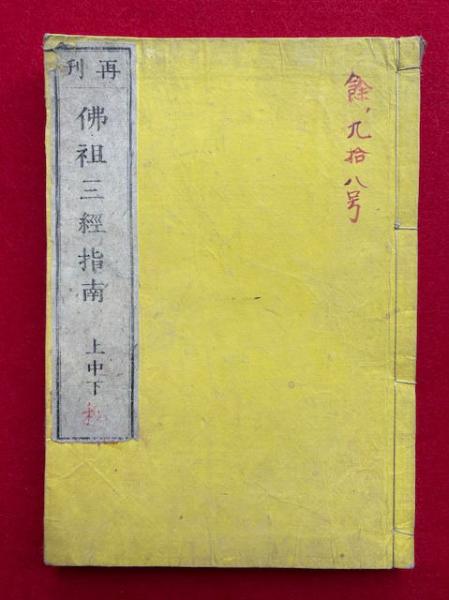 再刊
佛祖三經指南
上中下
私
餘、九拾八号